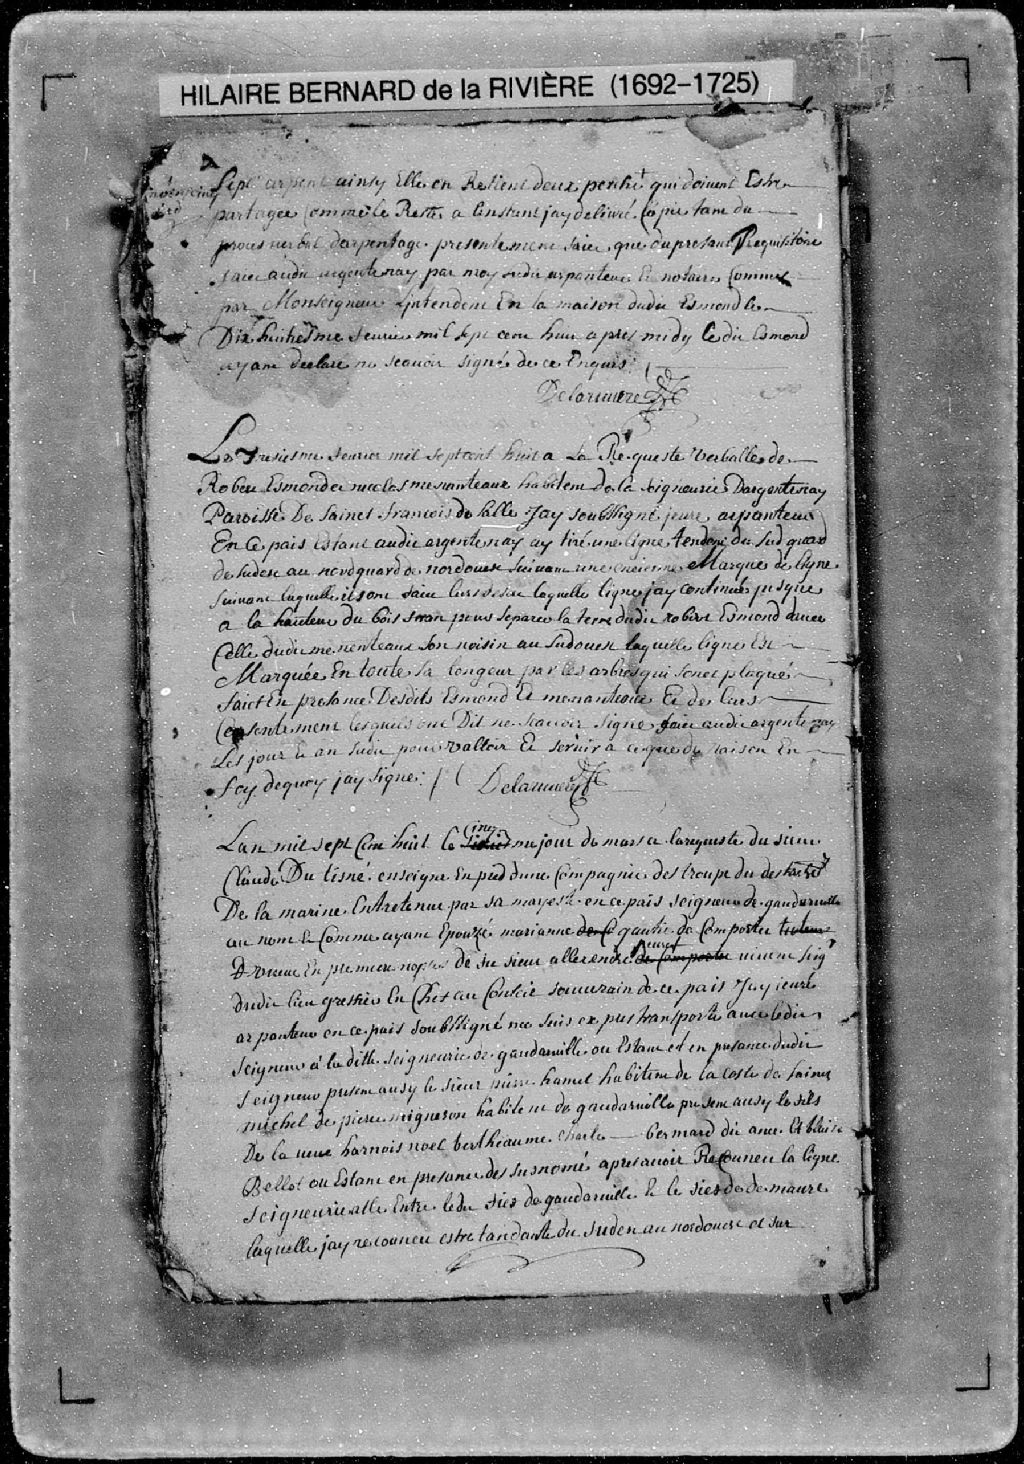 HILAIRE BERNARD de la RIVIÈRE (1692–1725)
Sept arpent ainsy Elle en Retient deux perche qui doivent Estre
partagée Comme le Reste a Linstant jay delivré Copie tant du
proces verbal darpentage presentement faict que du present Requisitoire
faict audit argentenay par moy susdit arpenteur Et notaire Commis
par Monseigneur Lintendent En la maison dudit Esmond le
Dix huitiesme feuvrier mil sept cent huit apres midy ledit Esmond
ayant declaré ne scavoir signé de ce Enquis
Delariviere
Le fevrier mil sept cent huit a La Requeste Verballe de
Robert Esmond et nicolas menanteaux habitent de la Seigneurie Dargentenay
Paroisse De Sainct francois de Salle Jay soubssigné juré arpanteur
En Ce pais Estant audit argentenay ay tiré une ligne tendant du Sud quard
de sudest au nordquard de nordouest suivant une encienne Marque de ligne
suivant laquelle ils ont faict laquelle ligne jay continué jusque
a la hauteur du bois pour separer la terre dudit robert Esmond davec
Celle dudit menenteaux son voisin au Sudouest laquelle ligne Est
Marquée En toute sa longeur par les arbres qui sonct plaqué
faict En presance Desdits Esmond Et menanteaux Et de leurs
Consentement lesquels ont Dit ne Scavoir Signe faict audit argentenay
Les jour Et an susdit pour valloir Et servir a ce que de raison En
foy dequoy jay signé
Delariviere
Lan mil sept Cent huit le Cinq me jour de mars a la requeste du sieur
Claude Du tisné enseigne En pied dune Compagnie des troupe du
De la marine Entretenue par sa mayesté en ce pais seigneur de gaudarville
au nom Et Comme ayant Epouzé marianne gautié de Comporter
Veuve En premiere nopces de feu sieur allexendre vivent Seig
dudit lieu greffier En Chef au Conseil souverain de ce pais Jay juré
arpanteur en ce pais soubssigné me suis expres transporté avec ledit
seigneur à la ditte seigneurie de gaudarville ou Estant et en presance dudit
seigneur present ausy le sieur pierre hamel habitent de la coste de Sainct
michel de pierre migneron habitent de gaudarville present ausy le fils
De la veuve harnois noel berthéaume charle bernard dit ance Et blaise
Bellot ou Estant en presance des susnomé apres avoir Reconneu la ligne
seigneurialle Entre ledit fief de gaudarville Et le fief de maure
laquelle jay reconneu estre tandante du Sudest au nordouest et sur